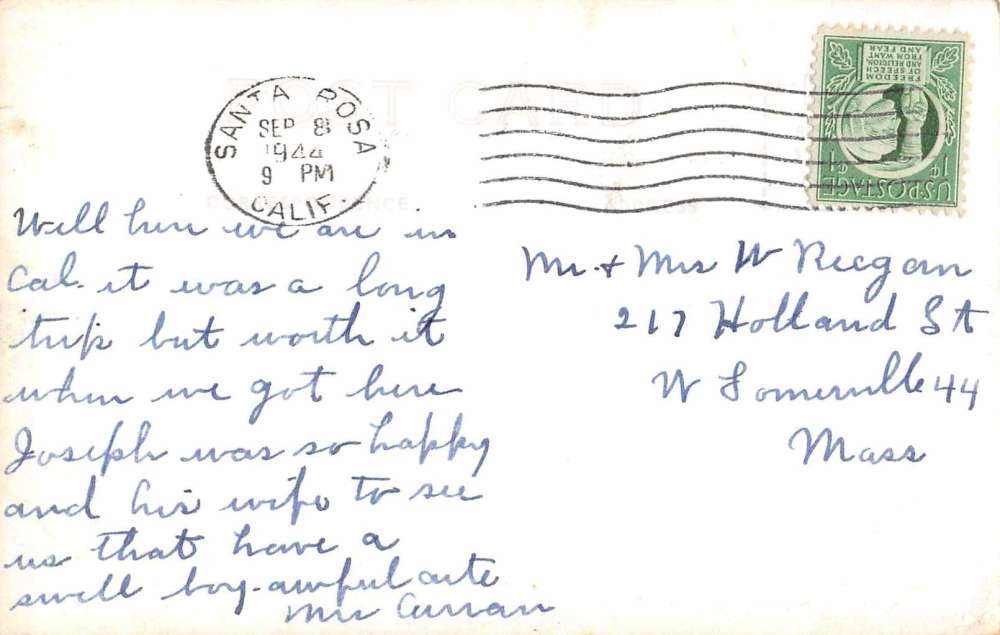 POST CARD
SANTA ROSA
SEP 8
1944
9 PM
CALIF
CORRESPONDENCE
ADDRESS
FREEDOM
OF SPEECH
AND RELIGION,
FROM WANT
AND FEAR
U.S. POSTAGE
1¢ 1¢
Well here we are in
Cal. it was a long
trip but worth it
when we got here
Joseph was so happy
and his wife to see
us that have a
swell boy. awful cute
Mrs Curran
Mr. + Mrs W Reegan
217 Holland St
W Somerville 44
Mass